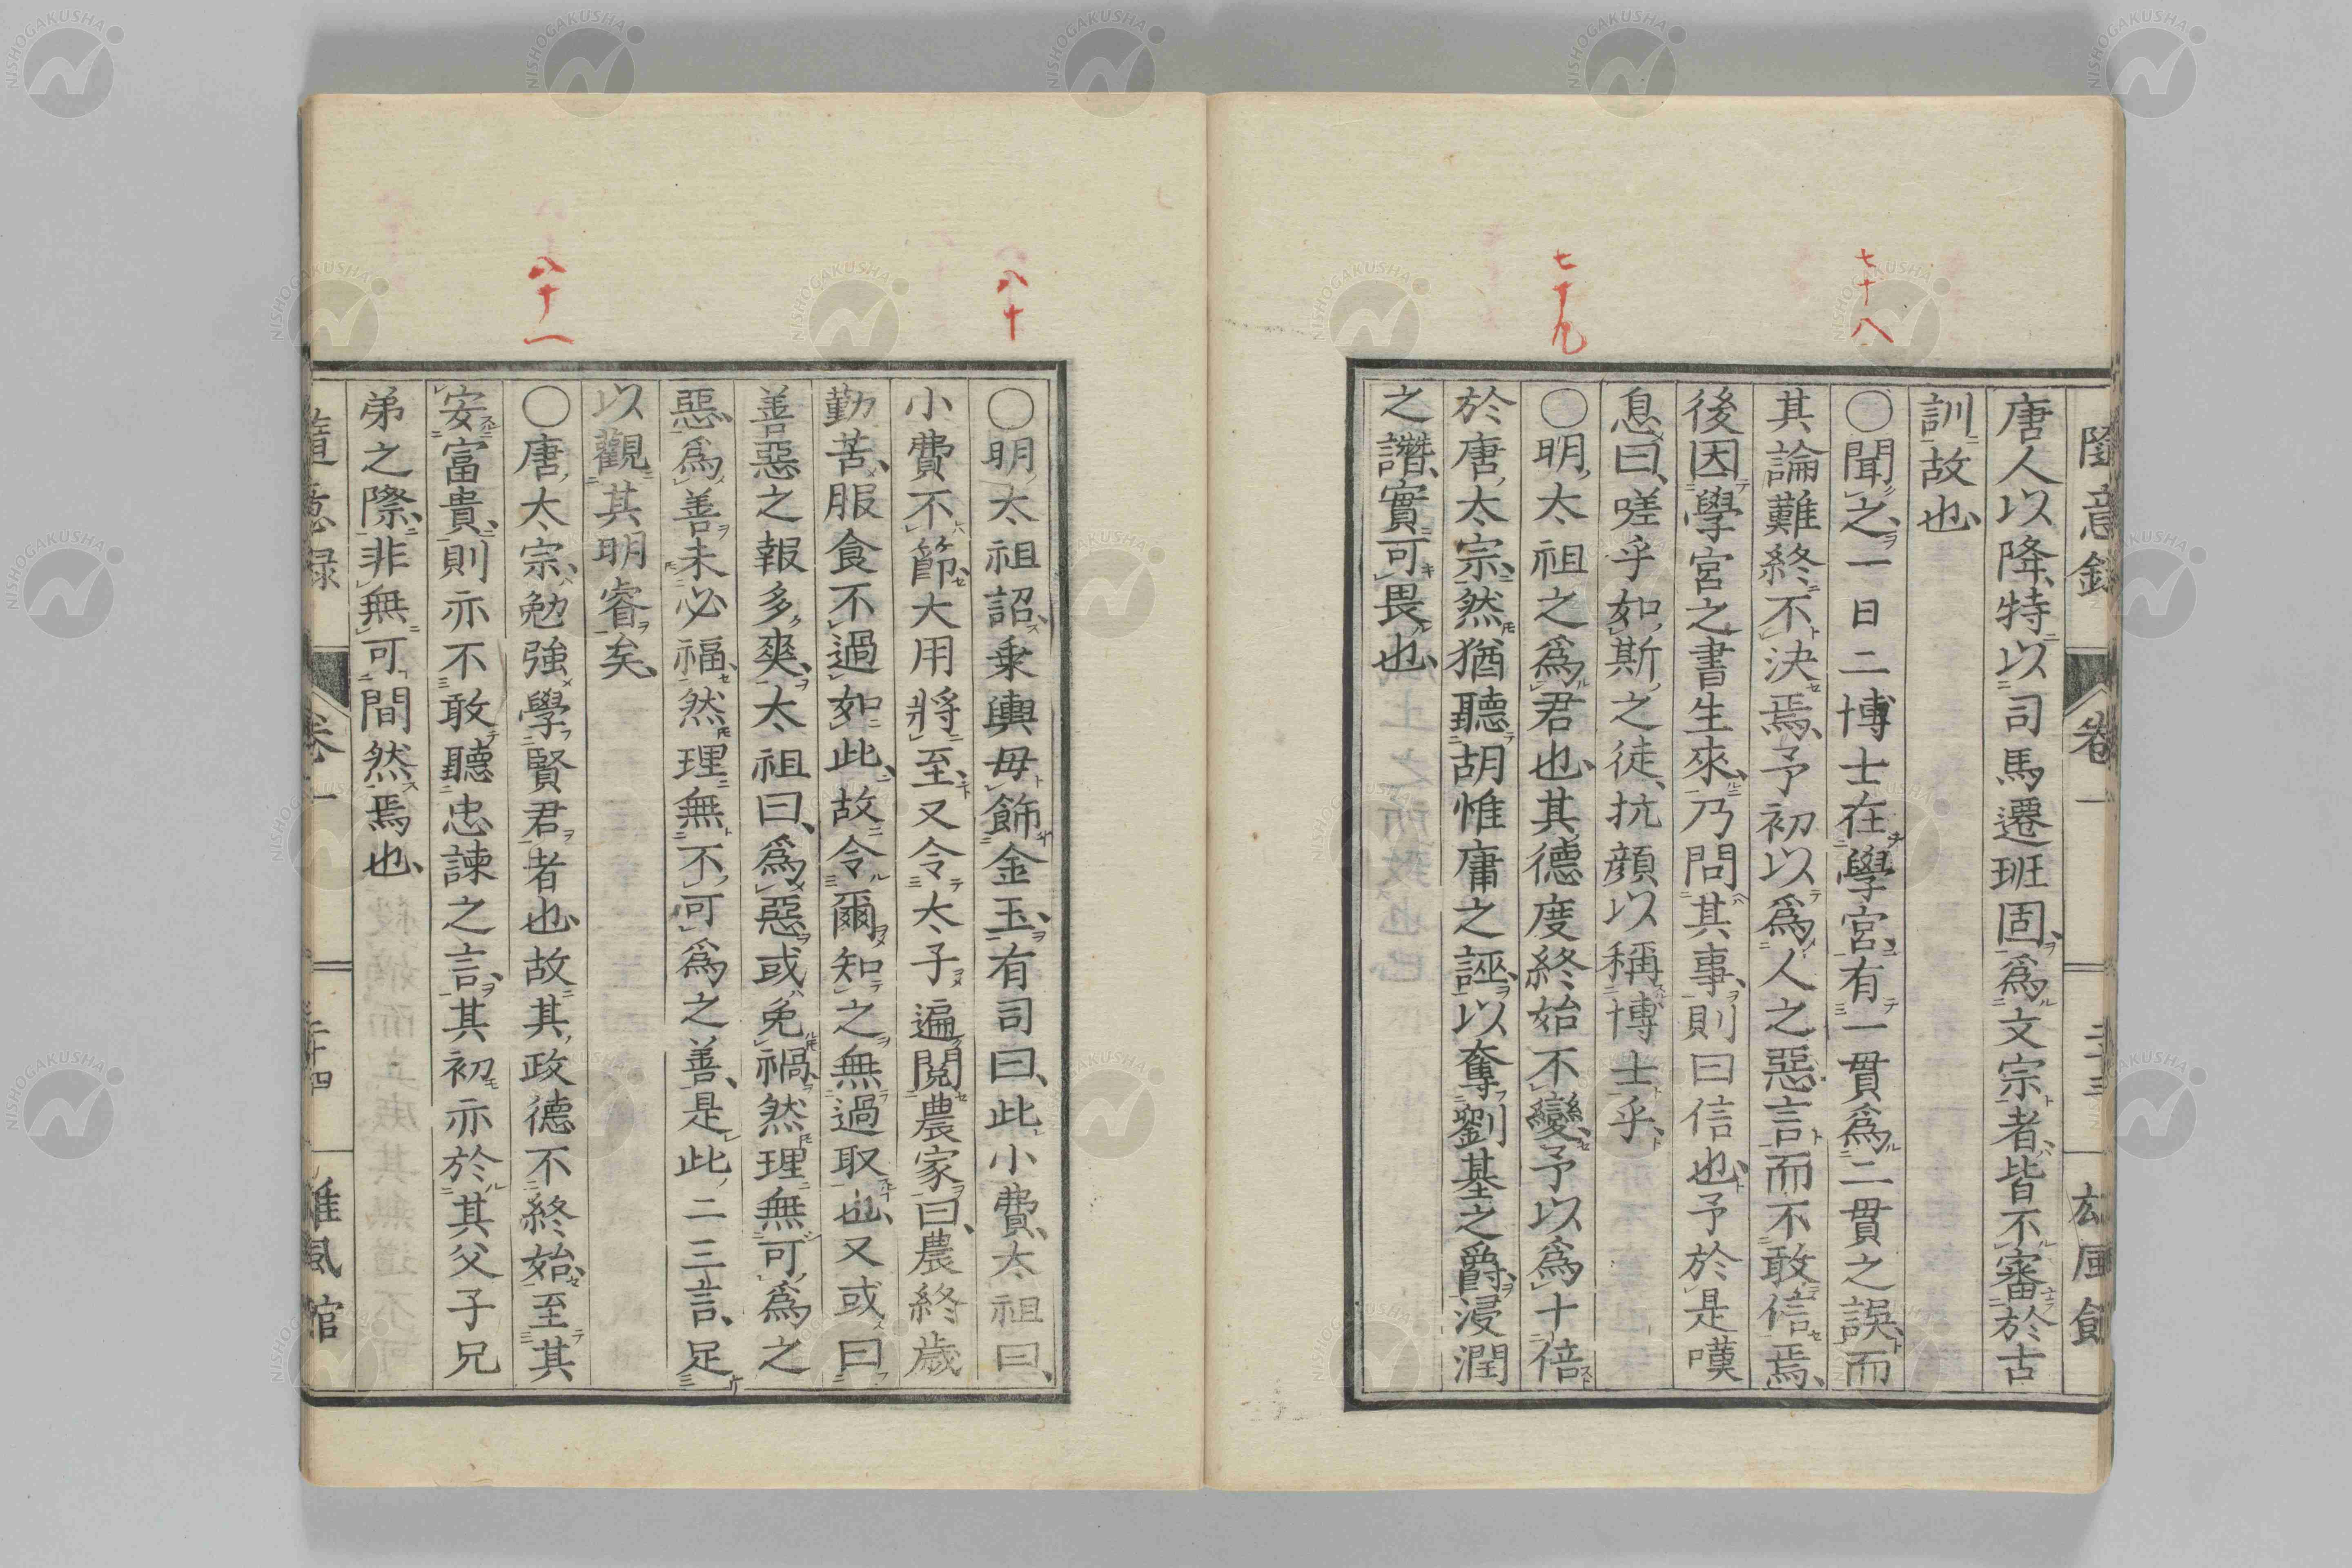 隨意録 卷一 二十三 雄風館
唐人以降、特以司馬遷班固、爲文宗者、皆不審於古
訓故也、
〇聞之、一日二博士在學宮、有一貫爲二貫之誤、而
其論難終不決焉、予初以爲人之惡言、而不敢信焉、
後因學宮之書生來、乃問其事、則曰信也、予於是嘆
息曰、嗟乎如斯之徒、抗顔以稱博士乎、
〇明太祖之爲君也、其德度終始不變、予以爲十倍
於唐太宗、然猶聽胡惟庸之誣、以奪劉基之爵、浸潤
之譖、實可畏也、
七十八
七十九
〇明太祖詔、乗輿毋飾金玉、有司曰、此小費、太祖曰、
小費不節、大用將至、又令太子遍閲農家、曰、農終歲
勤苦、服食不過如此、故令爾知之、無過取也、又或曰
善惡之報多爽、太祖曰、爲惡或免禍、然理無可爲之
惡、爲善未必福、然理無不可爲之善、是此二三言、足
以觀其明睿矣、
〇唐太宗、勉強學賢君者也、故其政德不終始、至其
安富貴、則亦不敢聽忠諫之言、其初亦於其父子兄
弟之際、非無可間然焉也、
八十
八十一
隨意録 卷一 二十四 雄風館
NISHOGAKUSHA